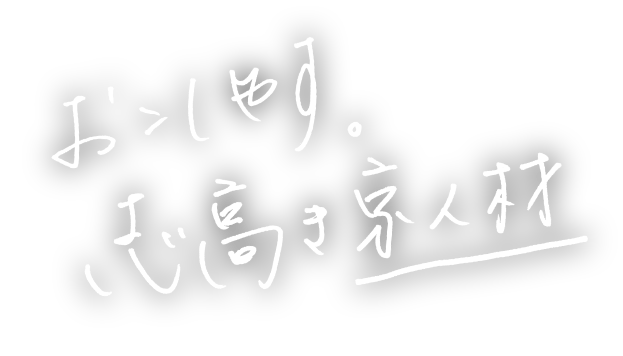 おこしやす。
志高き京人材